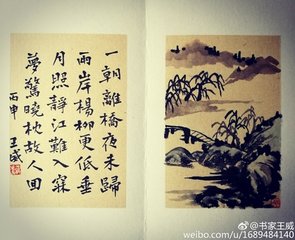 一朝離橋夜未歸
兩岸楊柳更低垂
月照靜江難入寐
夢驚曉枕故人回
丙申 王威
@书家王威
weibo.com/u/1689484140